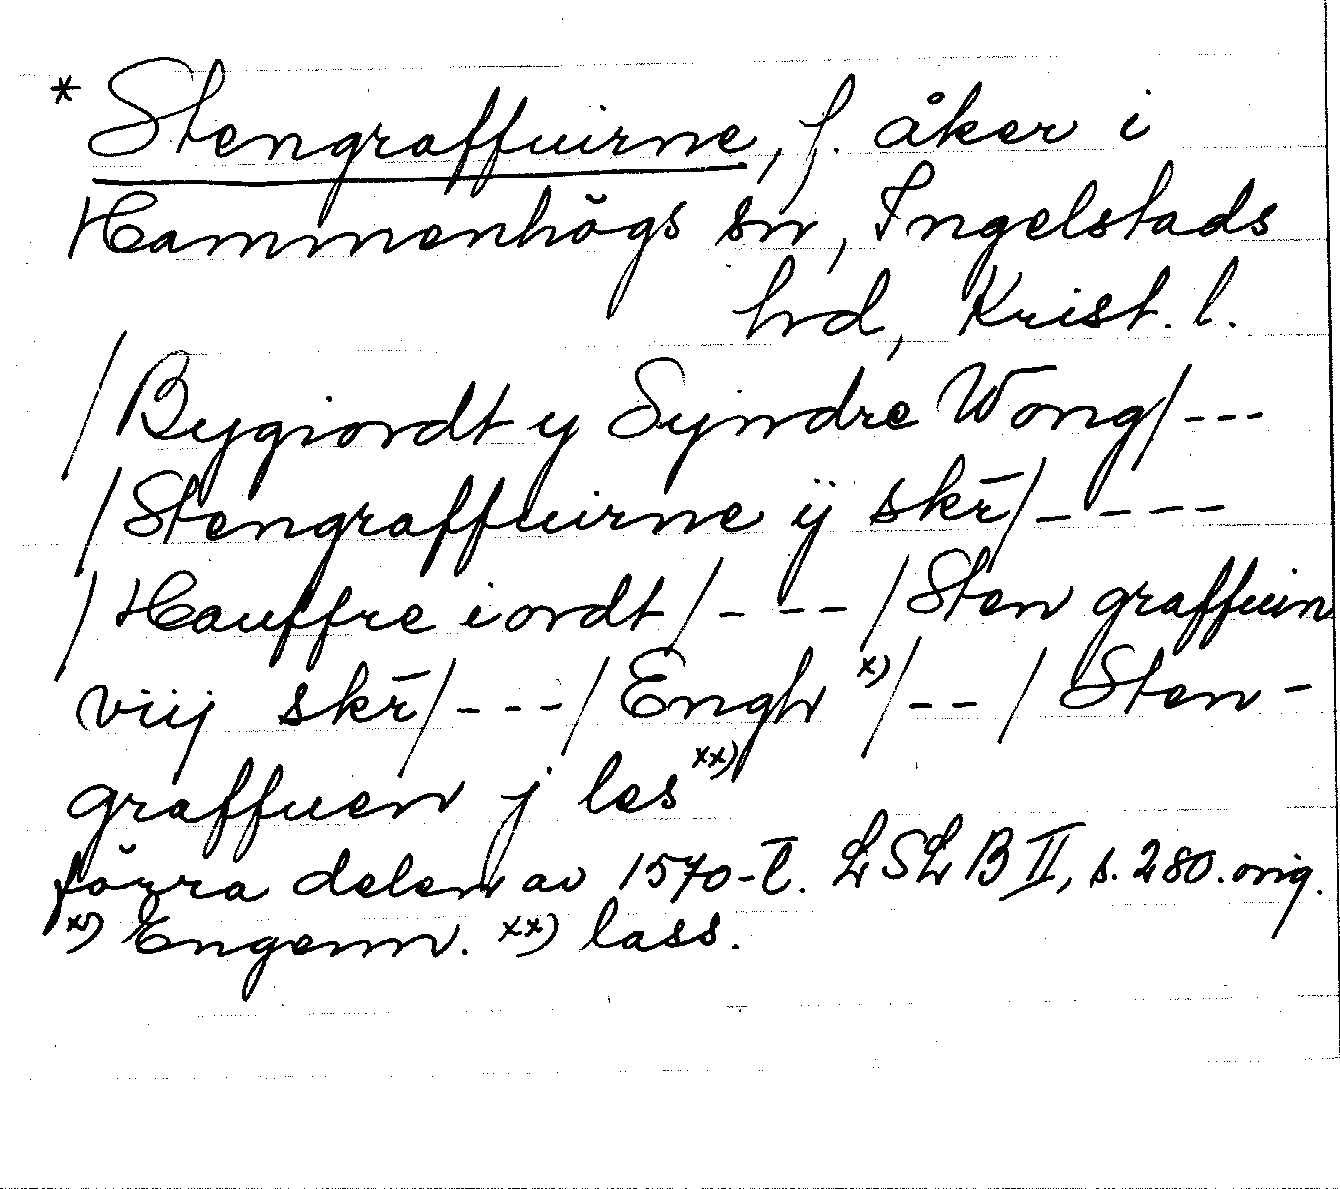 * Stengraffuirne, f. åker i
Hammenhögs sn, Ingelstads
hrd, Krist. l.
/Bygiordt y Syndre Wong/---
/Stengraffuirne ÿ skr̄/----
/Hauffre iordt/---/Sten graffuin
viij skr̄/---/Engh x)/--/Sten-
graffuen j les xx)
förra delen av 1570-t. LSLB II, s. 280. orig.
x) Engenn. xx) lass.